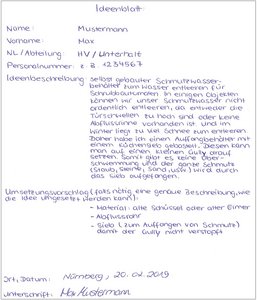 Ideenblatt
Name: Mustermann
Vorname: Max
NL / Abteilung: HV / Unterhalt
Personalnummer: z.B. 1234567
Ideenbeschreibung: selbst gebauter Schmutzwasser-
behälter zum Wasser entleeren für
Schrubbautomaten. In einigen Objekten
können wir unser Schmutzwasser nicht
ordentlich entleeren, da entweder die
Türschwellen zu hoch sind oder keine
Abflussrinne vorhanden ist und im
Winter liegt zu viel Schnee zum entleeren.
Daher habe ich einen Auffangbehälter mit
einem Küchensieb gebastelt. Diesen kann
man auf einen kleinen Gully drauf
setzen. Somit gibt es keine Über-
schwemmung und der ganze Schmutz
(Staub, Steine, Sand usw.) wird durch
das Sieb aufgefangen.
Umsetzungsvorschlag (falls nötig eine genaue Beschreibung, wie
die Idee umgesetzt werden kann):
- Material: alte Schüssel oder alter Eimer
- Abflussrohr
- Sieb (zum Auffangen von Schmutz)
damit der Gully nicht verstopft
Ort, Datum: Nürnberg, 20.02.2019
Unterschrift: Max Mustermann